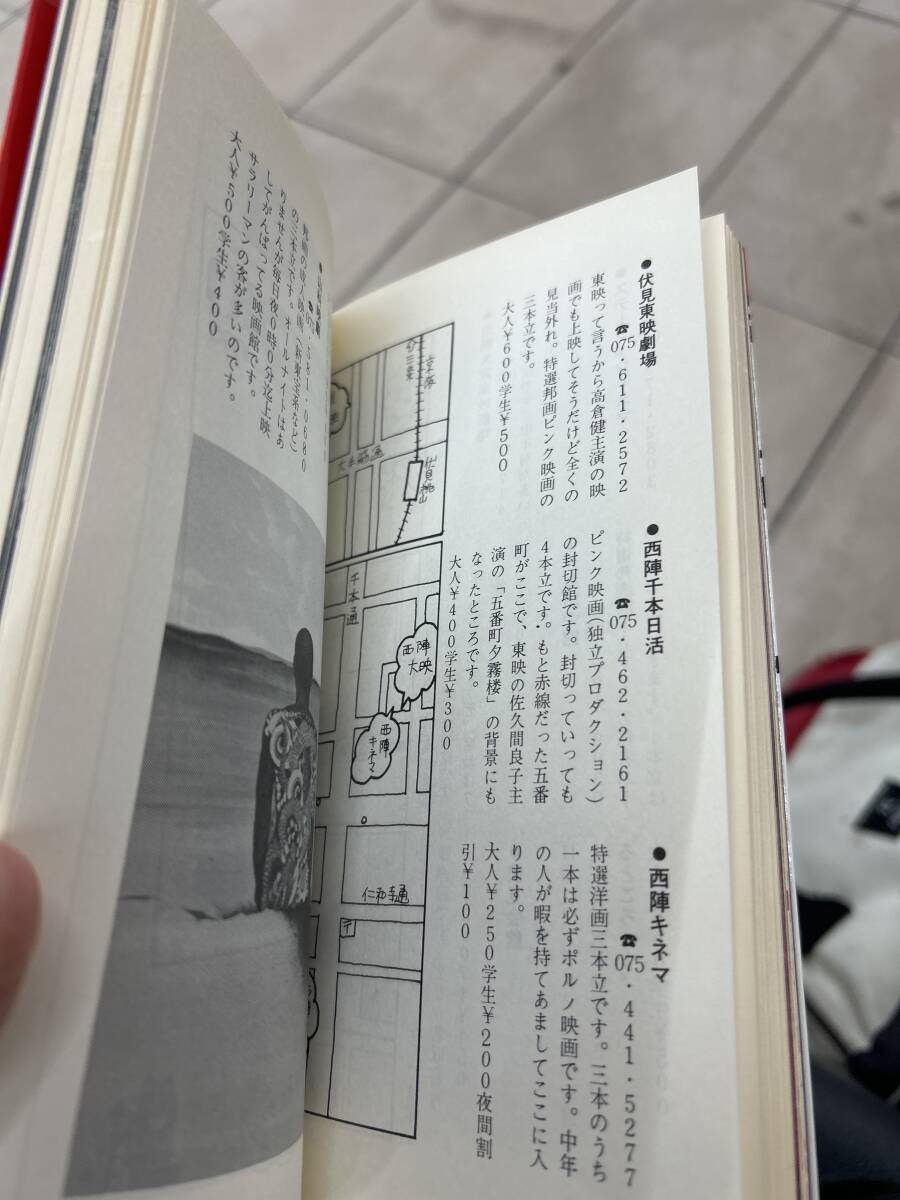 ●伏見東映劇場
☎075・611・2572
東映って言うから高倉健主演の映
画でも上映してそうだけど全くの
見当外れ。特選邦画ピンク映画の
三本立です。
大人¥600学生¥500
●西陣千本日活
☎075・462・2161
ピンク映画(独立プロダクション)
の封切館です。封切っていっても
4本立です・もと赤線だった五番
町がここで、東映の佐久間良子主
演の「五番町夕霧楼」の背景にも
なったところです。
大人¥400学生¥300
●西陣キネマ
☎075・441・5277
特選洋画三本立です。三本のうち
一本は必ずポルノ映画です。中年
の人が暇を持てあましてここに入
ります。
大人¥250学生¥200夜間割
引¥100
京阪
大手筋通
伏見桃山
千本通
西陣大映
西陣キネマ
仁和寺通
〒
581・0680
邦画の成人映画(新東宝系など)
の三本立です。オールナイトはあ
りませんが毎日夜0時0分迄上映
してがんばってる映画館です。
サラリーマンの客が多いのです。
大人¥500学生¥400